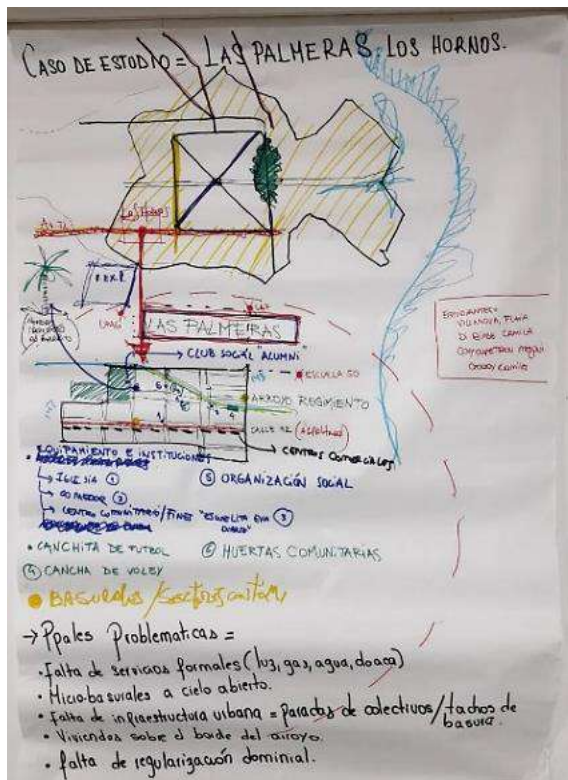 CASO DE ESTUDIO = LAS PALMERAS. LOS HORNOS.
LOS HORNOS
LAS PALMEIRAS
→ CLUB SOCIAL "ALUMNI"
ESCUELA 50
ARROYO REGIMIENTO
CALLE 72 (ASFALTADO)
→ CENTROS COMERCIALES
• EQUIPAMIENTO E INSTITUCIONES
→ IGLESIA ①
⑤ ORGANIZACIÓN SOCIAL
→ COMEDOR ②
→ CENTRO COMUNITARIO/FINES "ESCUELITA EVA ③
• CANCHITA DE FUTBOL
⑥ HUERTAS COMUNITARIAS
④ CANCHA DE VOLEY
BASURALES /
→ Ppales Problematicas =
• Falta de servicios formales (luz, gas, agua, cloaca)
• Micro-basurales a cielo abierto.
• Falta de infraestructura urbana = paradas de colectivos/tachos de
basura.
• Viviendas sobre el borde del arroyo.
• falta de regularización dominial.